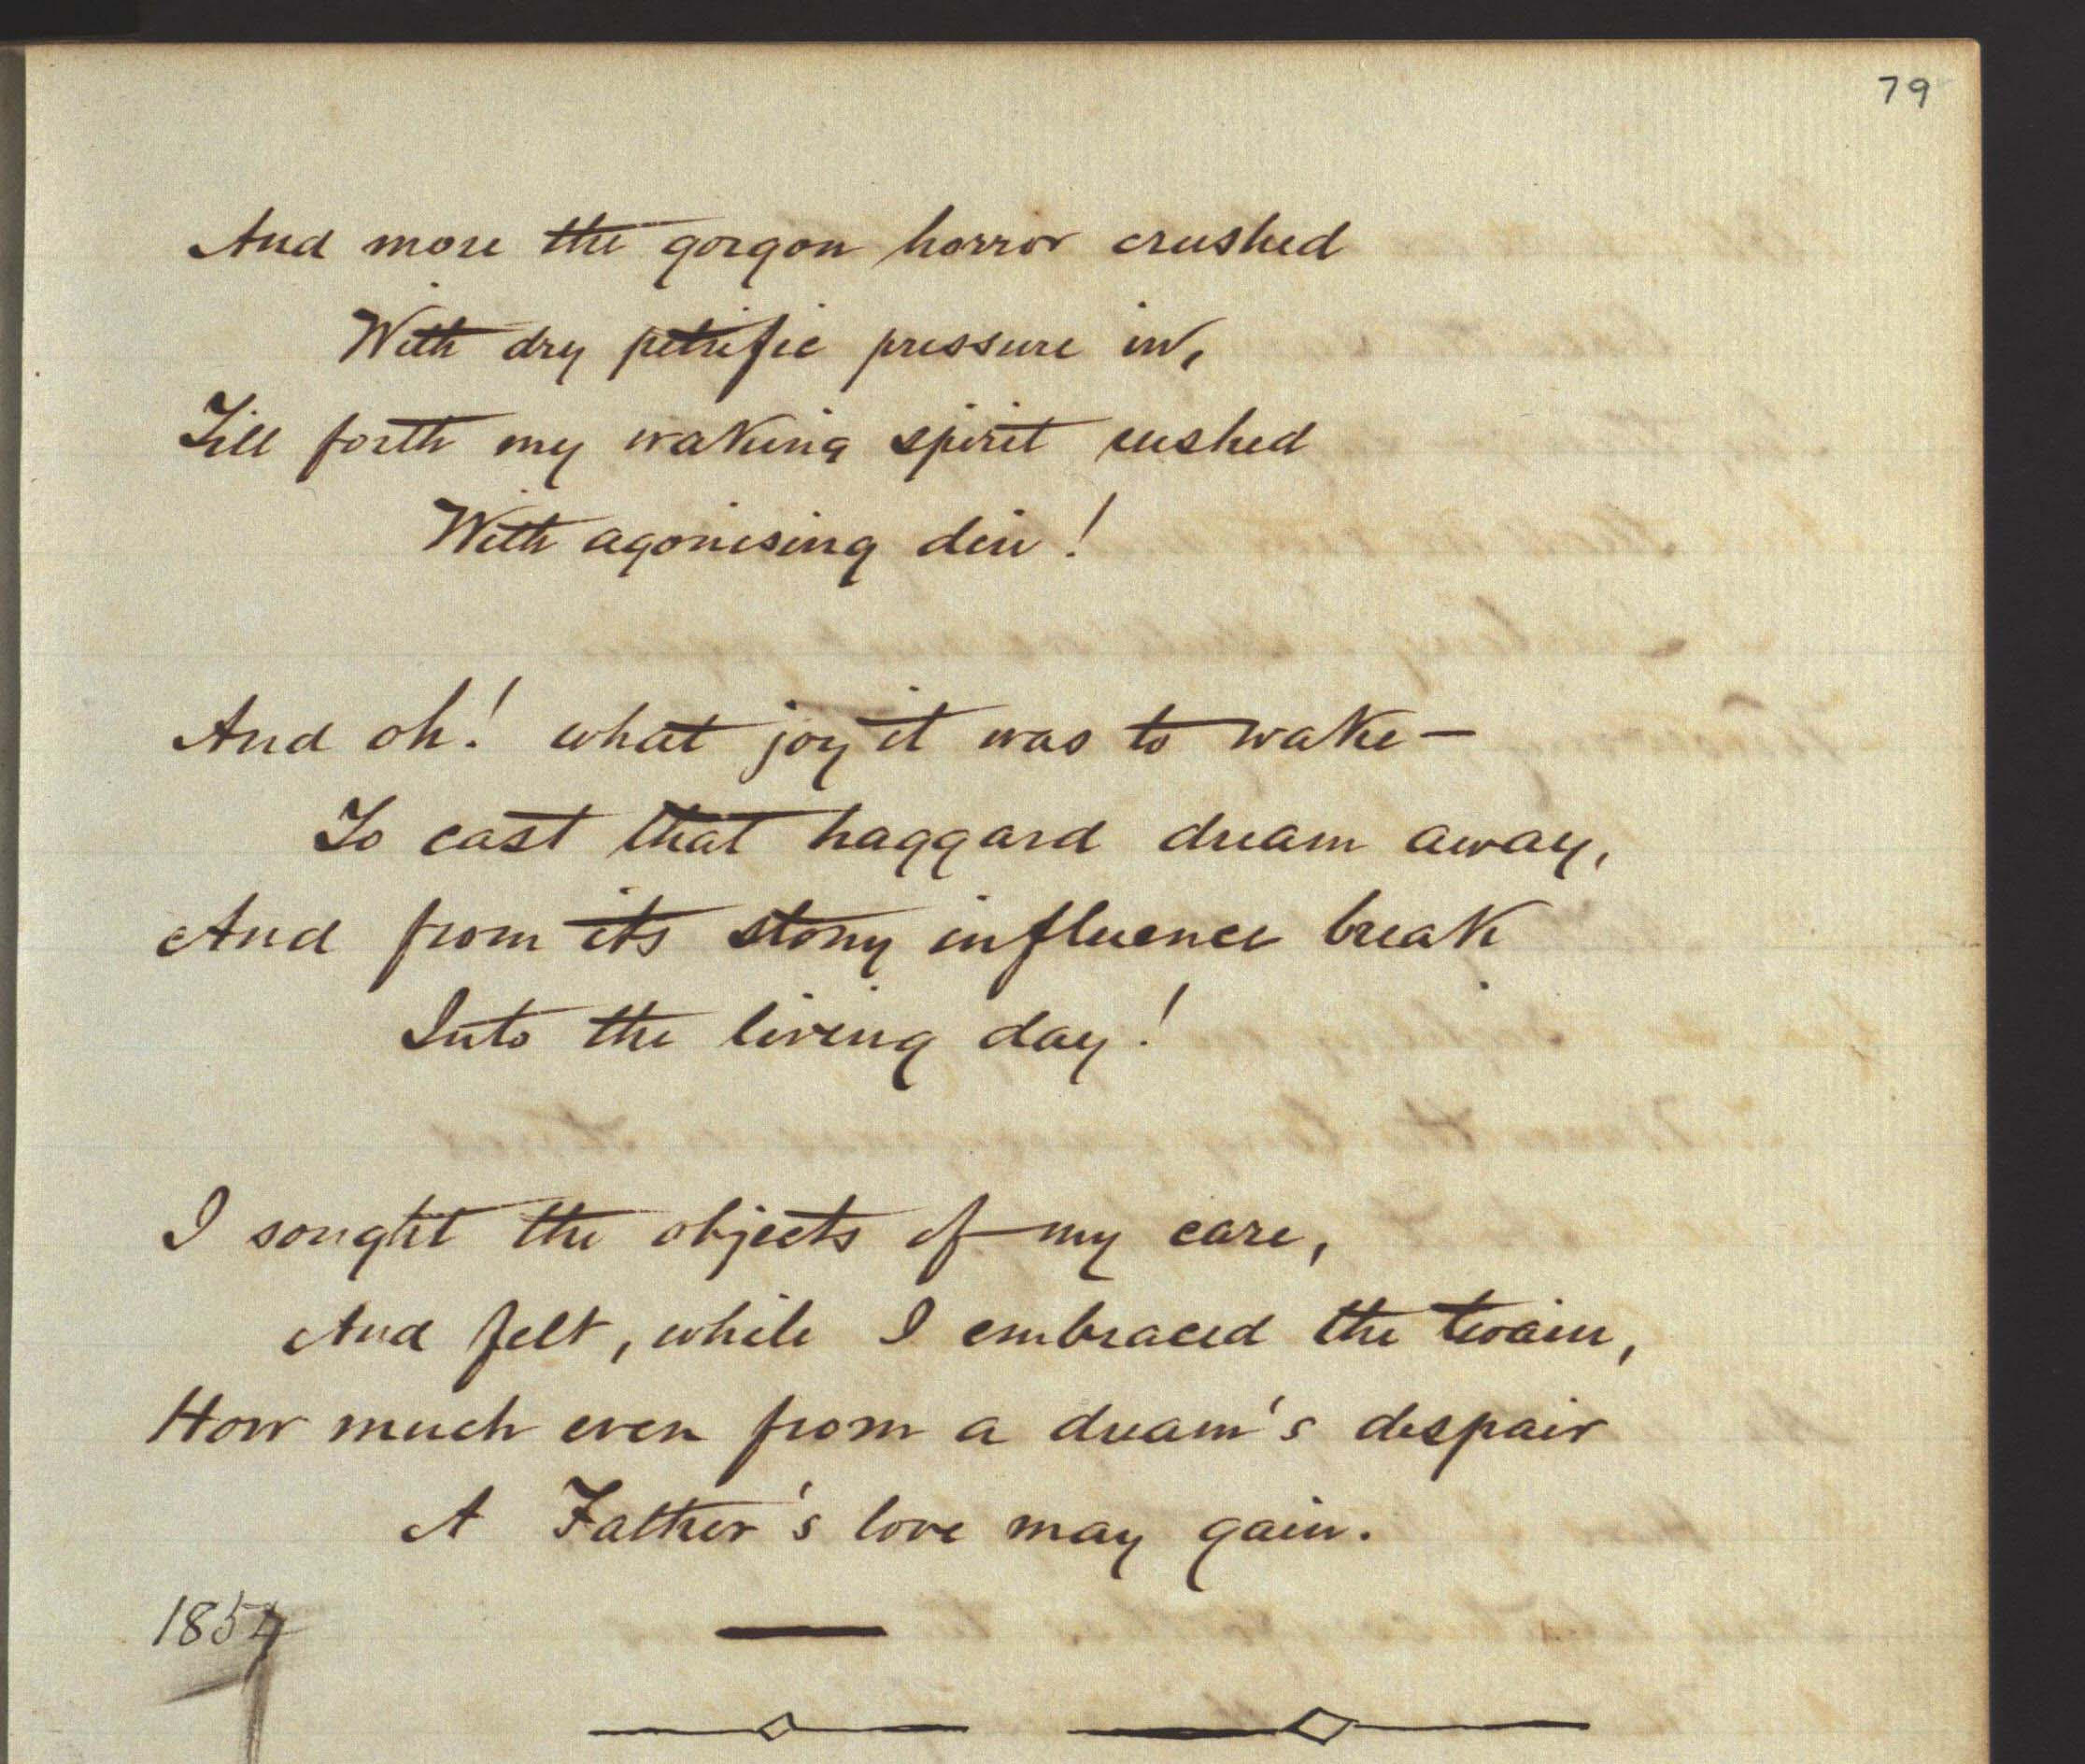 79
And more the gorgon horror crushed
With dry petrific pressure in,
Till forth my waking spirit rushed
With agonising din!
And oh! what joy it was to wake—
To cast that haggard dream away,
And from its stony influence break
Into the living day!
I sought the objects of my care,
And felt, while I embraced the twain,
How much even from a dream's despair
A Father's love may gain.